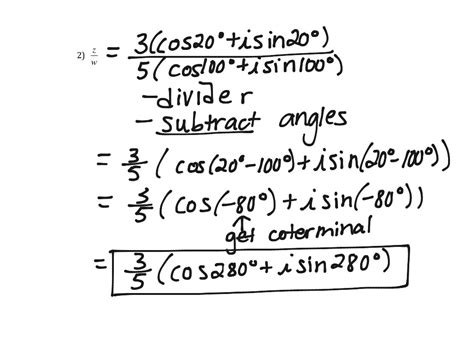 2) z/w = 3(cos20°+isin20°)
5(cos100°+isin100°)
-divide r
- subtract angles
= 3/5 (cos(20°-100°)+isin(20°-100°))
= 3/5 (cos(-80°)+isin(-80°))
get coterminal
= 3/5 (cos280°+isin280°)